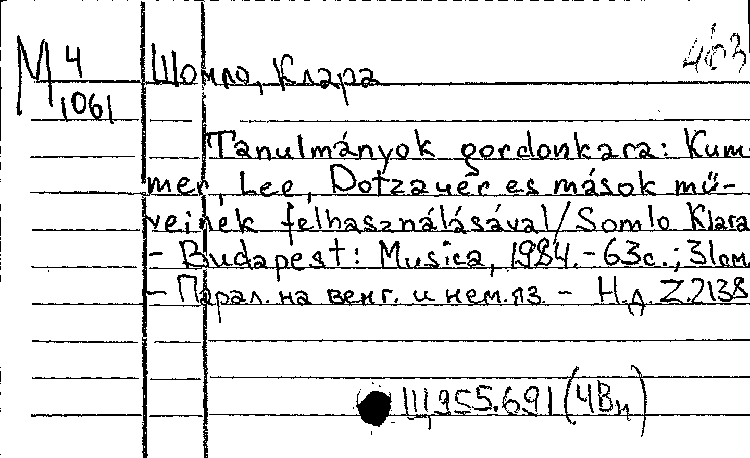 М 4 Шомло, Клара 463
1061
Tanulmányok gordonkara: Kum-
mer, Lee, Dotzauer es mások mű-
veinek felhasználásával/Somlo Klara
- Budapest: Musica, 1984.-63с.; 31см
- Парал. на венг. и нем.яз - Н.д. Z.2138
Щ955.691(4Вн)